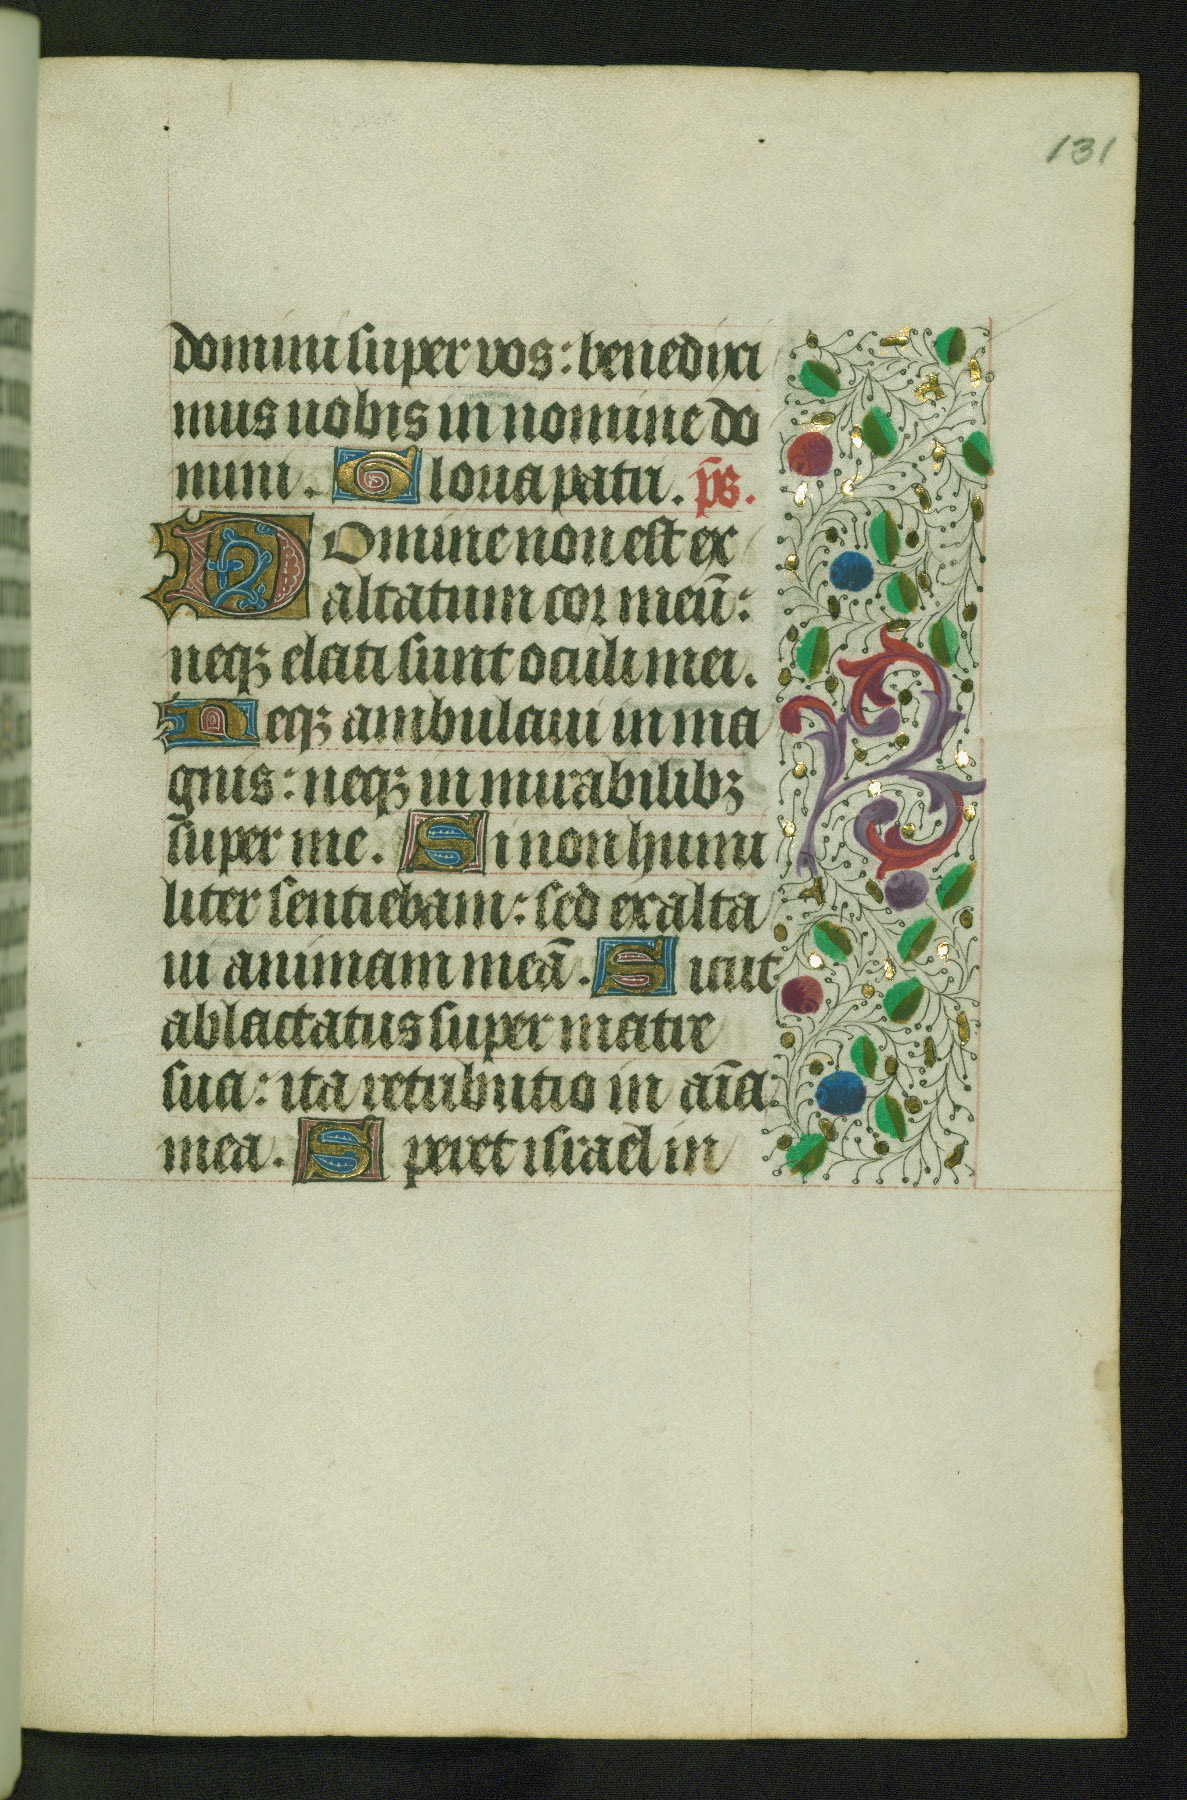 131
domini super vos: benedixi
mus uobis in nomine do
mini. Gloria patri. p̄s.
Domine non est ex
altatum cor meū:
neqꝫ elati sunt oculi mei.
Neqꝫ ambulaui in ma
gnis: neqꝫ in mirabilibꝫ
super me. Si non humi
liter sentiebam: sed exalta
ui animam meā. Sicut
ablactatus super matre
sua: ita retributio in aīa
mea. Speret israel in